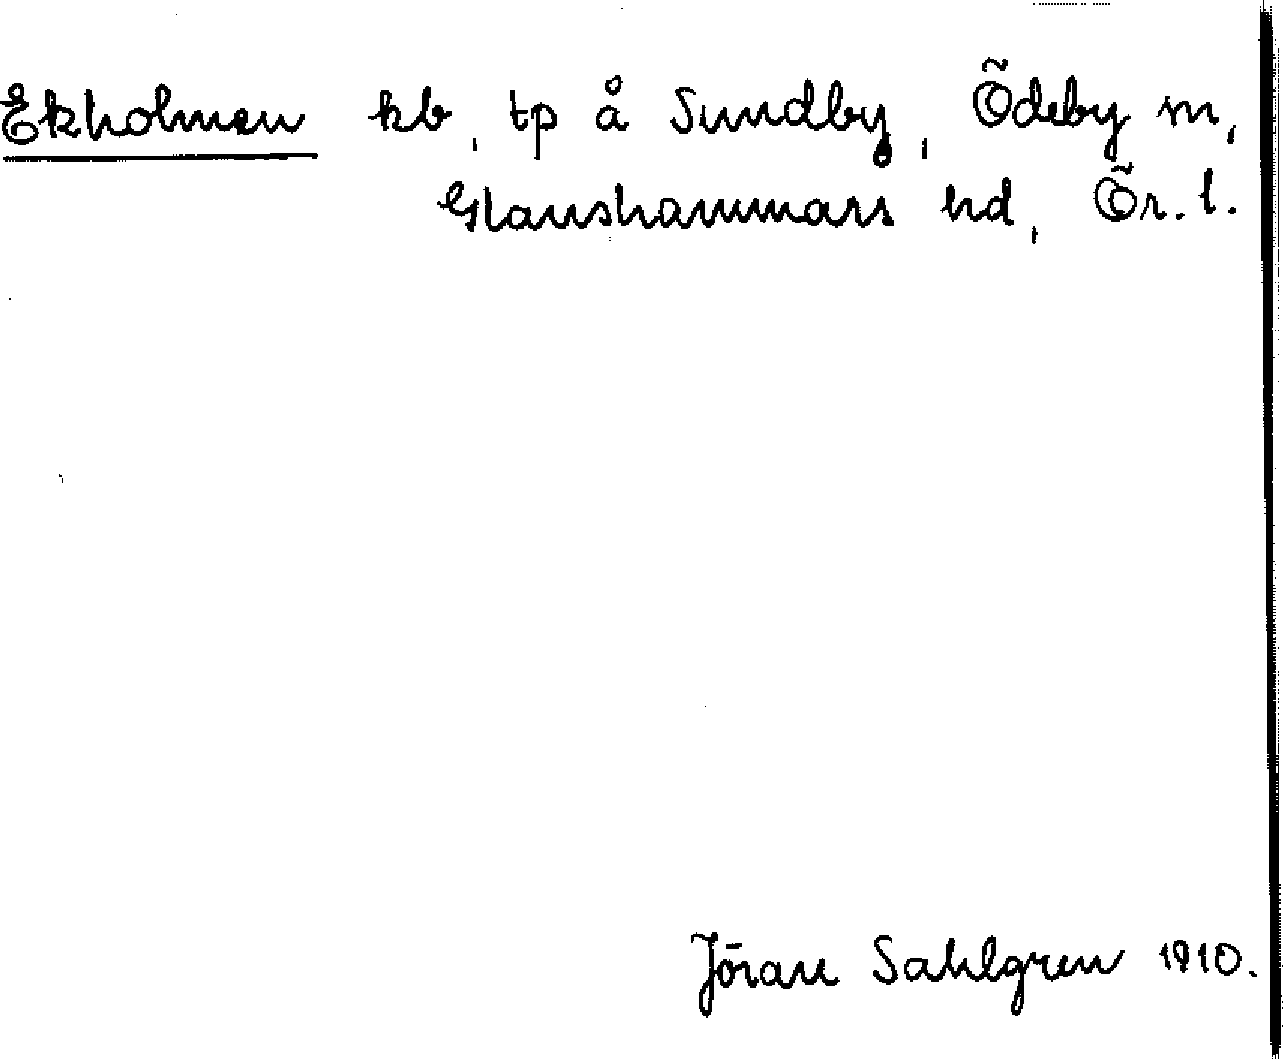 Ekholmen kb, tp å Sundby, Ödeby sn,
Glanshammars hd, Ör. l.
Jöran Sahlgren 1910.